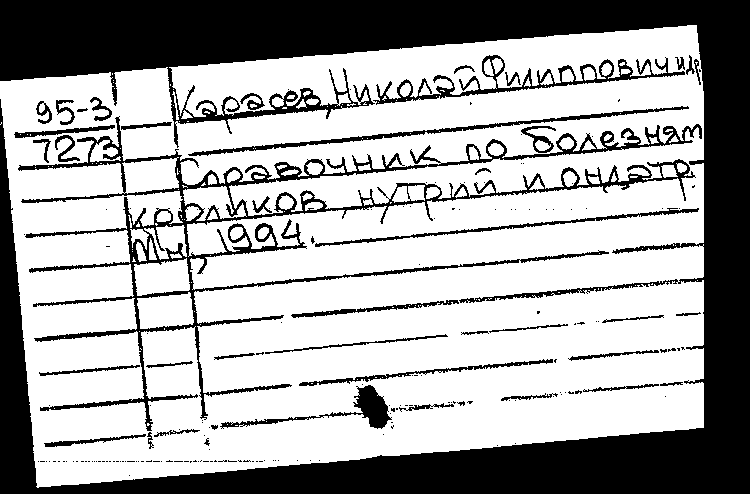 95-3 Карасев, Николай Филиппович и др.
7273
Справочник по болезням
кроликов, нутрий и ондатр.
Мн., 1994.